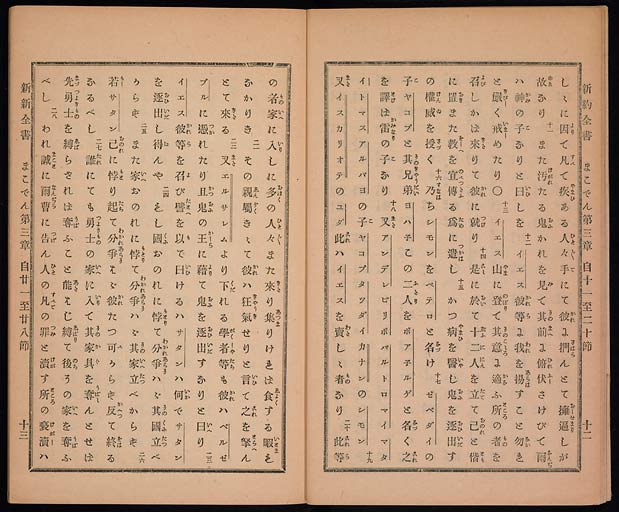 新約全書 まこでん第三章 自十一至二十節 十二
しヽに因て凡て疾ある人々手にて彼に捫んとて擁逼しが
故なり 十一 また汚たる鬼かれを見て其前に俯伏さけびて爾
ハ神の子なりと曰しを 十二 イエス彼等に我を揚すこと勿き
と嚴く戒めたり〇 十三 イエス山に登て其意に適ふ所の者を
召しかば來りて彼に就り 十四 是に於て十二人を立て己と偕
に置また教を宣傳る爲に遣し 十五 かつ病を醫し鬼を逐出す
の權威を授く 十六 乃ちシモンをペテロと名け 十七 ゼベダイの
子ヤコブと其兄弟ヨハ子この二人をボアチルゲと名く之
を譯ば雷の子なり 十八 又アンデレピリポバルトロマイマタ
イトマスアルパヨの子ヤコブタツダイカナンのシモン 十九
又イスカリオテのユダ此ハイエスを賣しヽ者なり 二十 此等
の者家に入しに多の人々また來り集りけきば食する暇も
なかりき 二一 その親屬きヽて彼ハ狂氣せりと言て之を拏ん
とて來る 二二 又エルサレムより下れる學者等も彼ハベルゼ
ブルに憑れたり且鬼の王に藉て鬼を逐出すなりと曰り 二三
イエス彼等を召び譬を以て曰けるハサタンハ何でサタン
を逐出し得んや 二四 もし國おのれに悖て分爭ハヾ其國立べ
からき 二五 また家おのれに悖て分爭ハヾ其家立べからき 二六
若サタン己に悖り起て分爭ハヾ彼たつ可らき反て終る
なるべし 二七 誰にても勇士の家に入て其家具を奪んとせば
先勇士を縛らされば奪ふこと能もじ縛て後ろの家を奪ふ
べし 二八 われ誠に爾曹に告ん人の凡の罪と瀆す所の褻瀆ハ
新約全書 まこでん第三章 自廿一至廿八節 十三